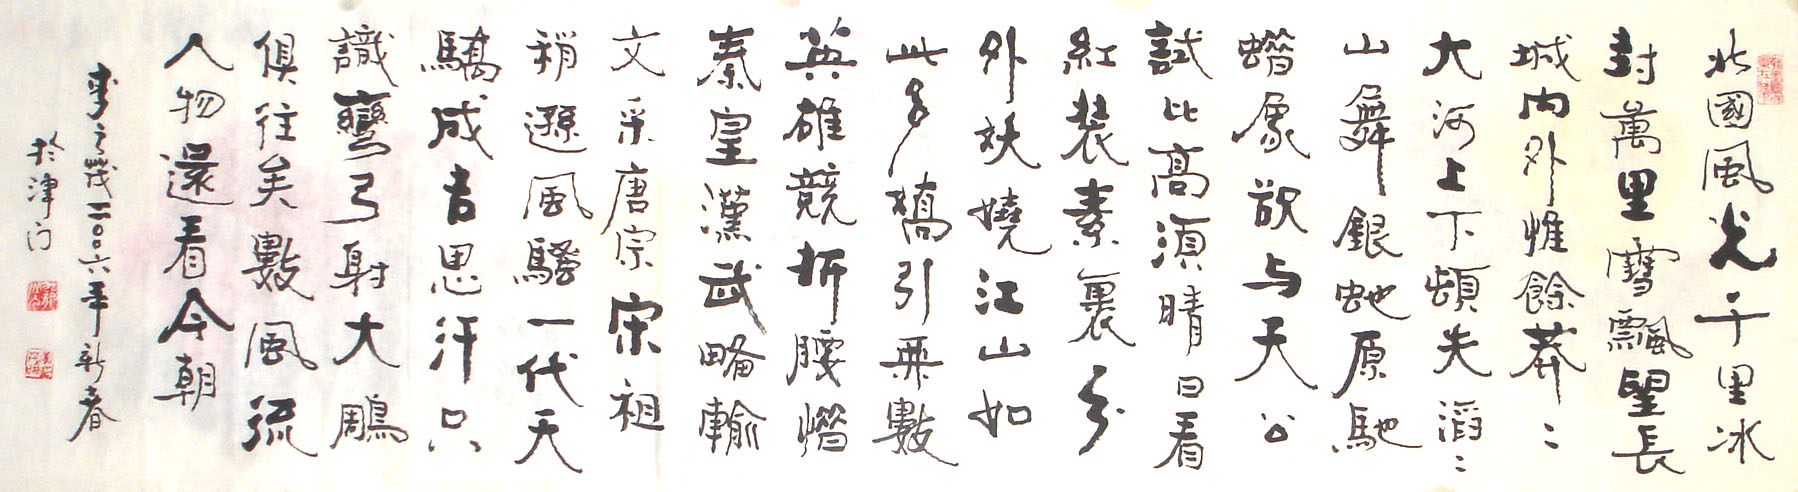 北國風光千里冰
封萬里雪飄望長
城內外惟餘莽〻
大河上下頓失滔〻
山舞銀蛇原馳
蜡像欲与天公
試比高須晴日看
紅裝素裹分
外妖嬈江山如
此多嬌引無數
英雄競折腰惜
秦皇漢武略輸
文采唐宗宋祖
稍遜風騷一代天
驕成吉思汗只
識彎弓射大鵰
俱往矣數風流
人物還看今朝
李之茂二〇〇六年新春
於津门